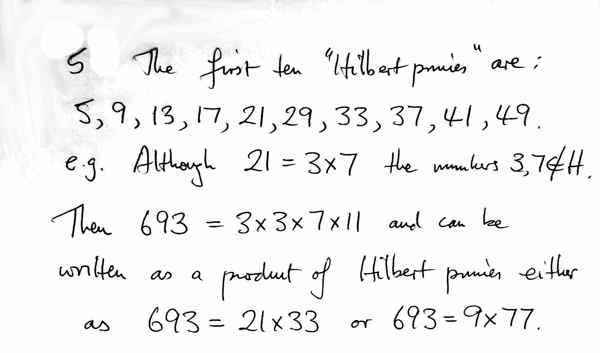 5 The first ten "Hilbert primes" are:
5, 9, 13, 17, 21, 29, 33, 37, 41, 49.
e.g. Although 21 = 3×7 the numbers 3,7∉H.
Then 693 = 3×3×7×11 and can be
written as a product of Hilbert primes either
as 693 = 21×33 or 693 = 9×77.